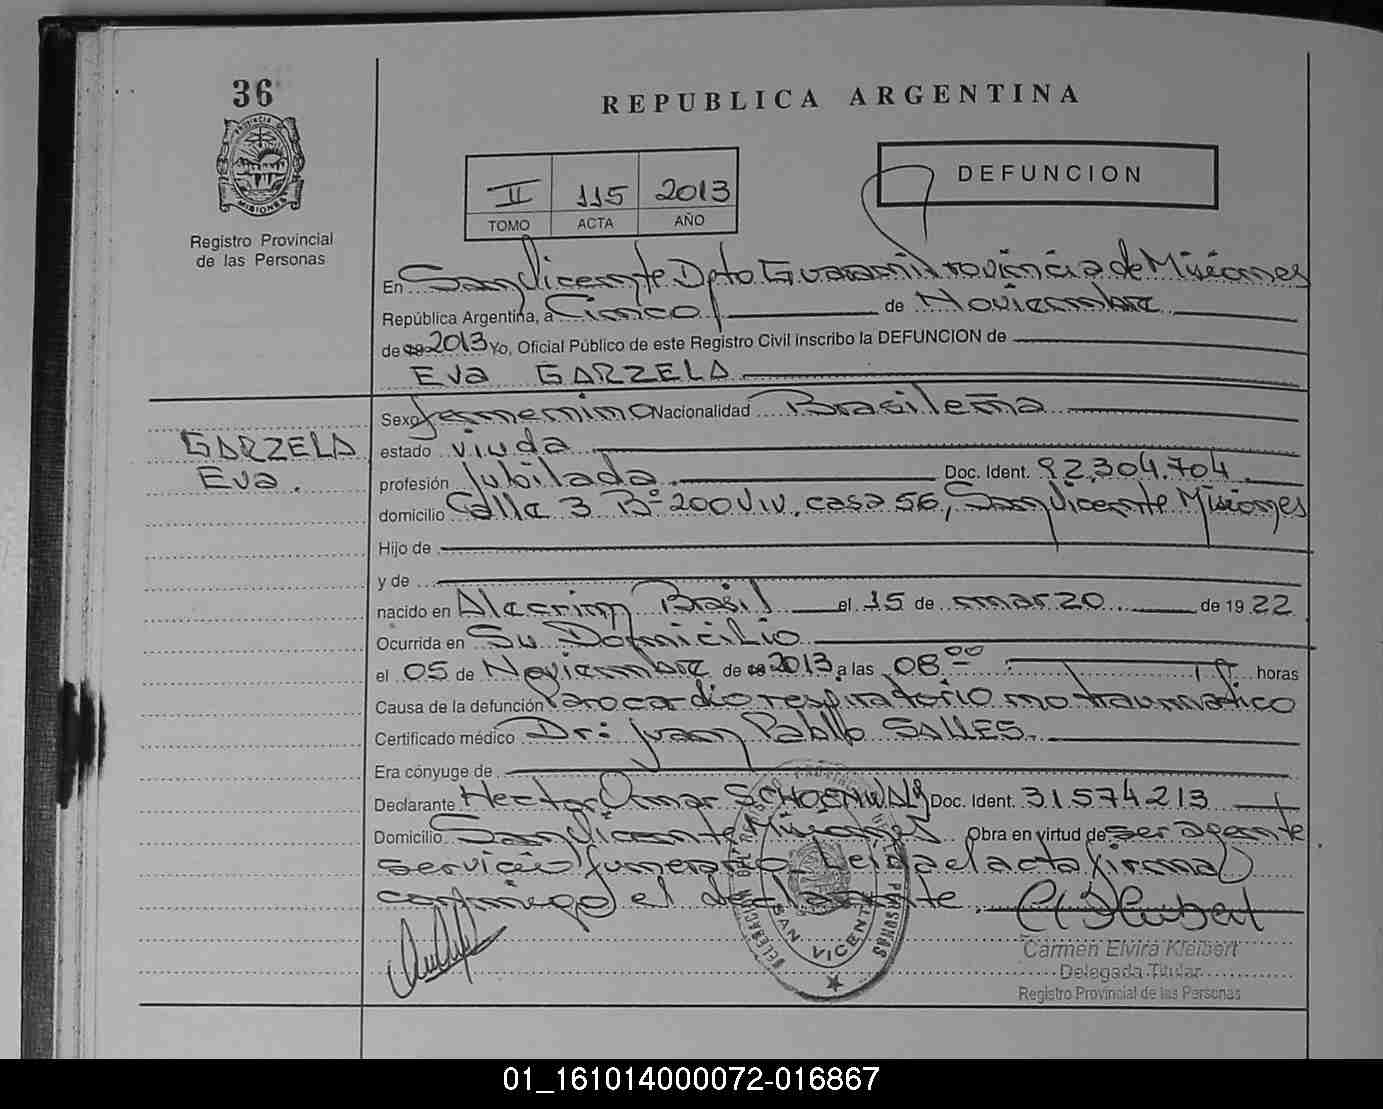 36
REPUBLICA ARGENTINA
PROVINCIA DE
MISIONES
Registro Provincial
de las Personas
II 115 2013
TOMO ACTA AÑO
DEFUNCION
En San Vicente Dpto Guarani Provincia de Misiones
República Argentina, a Cinco de Noviembre
de 2013 Yo, Oficial Público de este Registro Civil inscribo la DEFUNCION de
EVa GARZELA
GARZELA
EVa.
Sexo femenino Nacionalidad Brasileña
estado viuda
profesión Jubilada. Doc. Ident. 92.304.704.
domicilio Calle 3 Bº 200 Viv. casa 56, San Vicente Misiones
Hijo de
y de
nacido en Alecrim Brasil el 15 de marzo de 19 22
Ocurrida en Su Domicilio
el 05 de Noviembre de 2013 a las 08:00 horas
Causa de la defunción Paro cardio respiratorio no traumatico
Certificado médico Dr: Juan Pablo SALLES.
Era cónyuge de
Declarante Hector Omar Doc. Ident. 31.574.213
Domicilio San Vicente Misiones Obra en virtud de ser agente
servicio funerario. Leida el acta firma
conmigo el declarante.
SAN VICENTE
Carmen Elvira Kleibert
Delegada Titular
Registro Provincial de las Personas
01_161014000072-016867